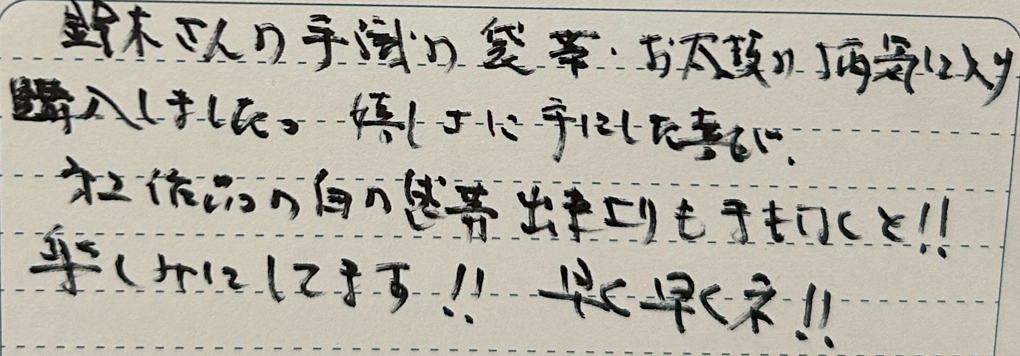 鈴木さんの手織の袋帯・お太鼓の柄気に入り
購入しました。嬉しさに手にした喜び、
作品の白の袋帯出来
楽しみにしてます!! 早く早くネ!!